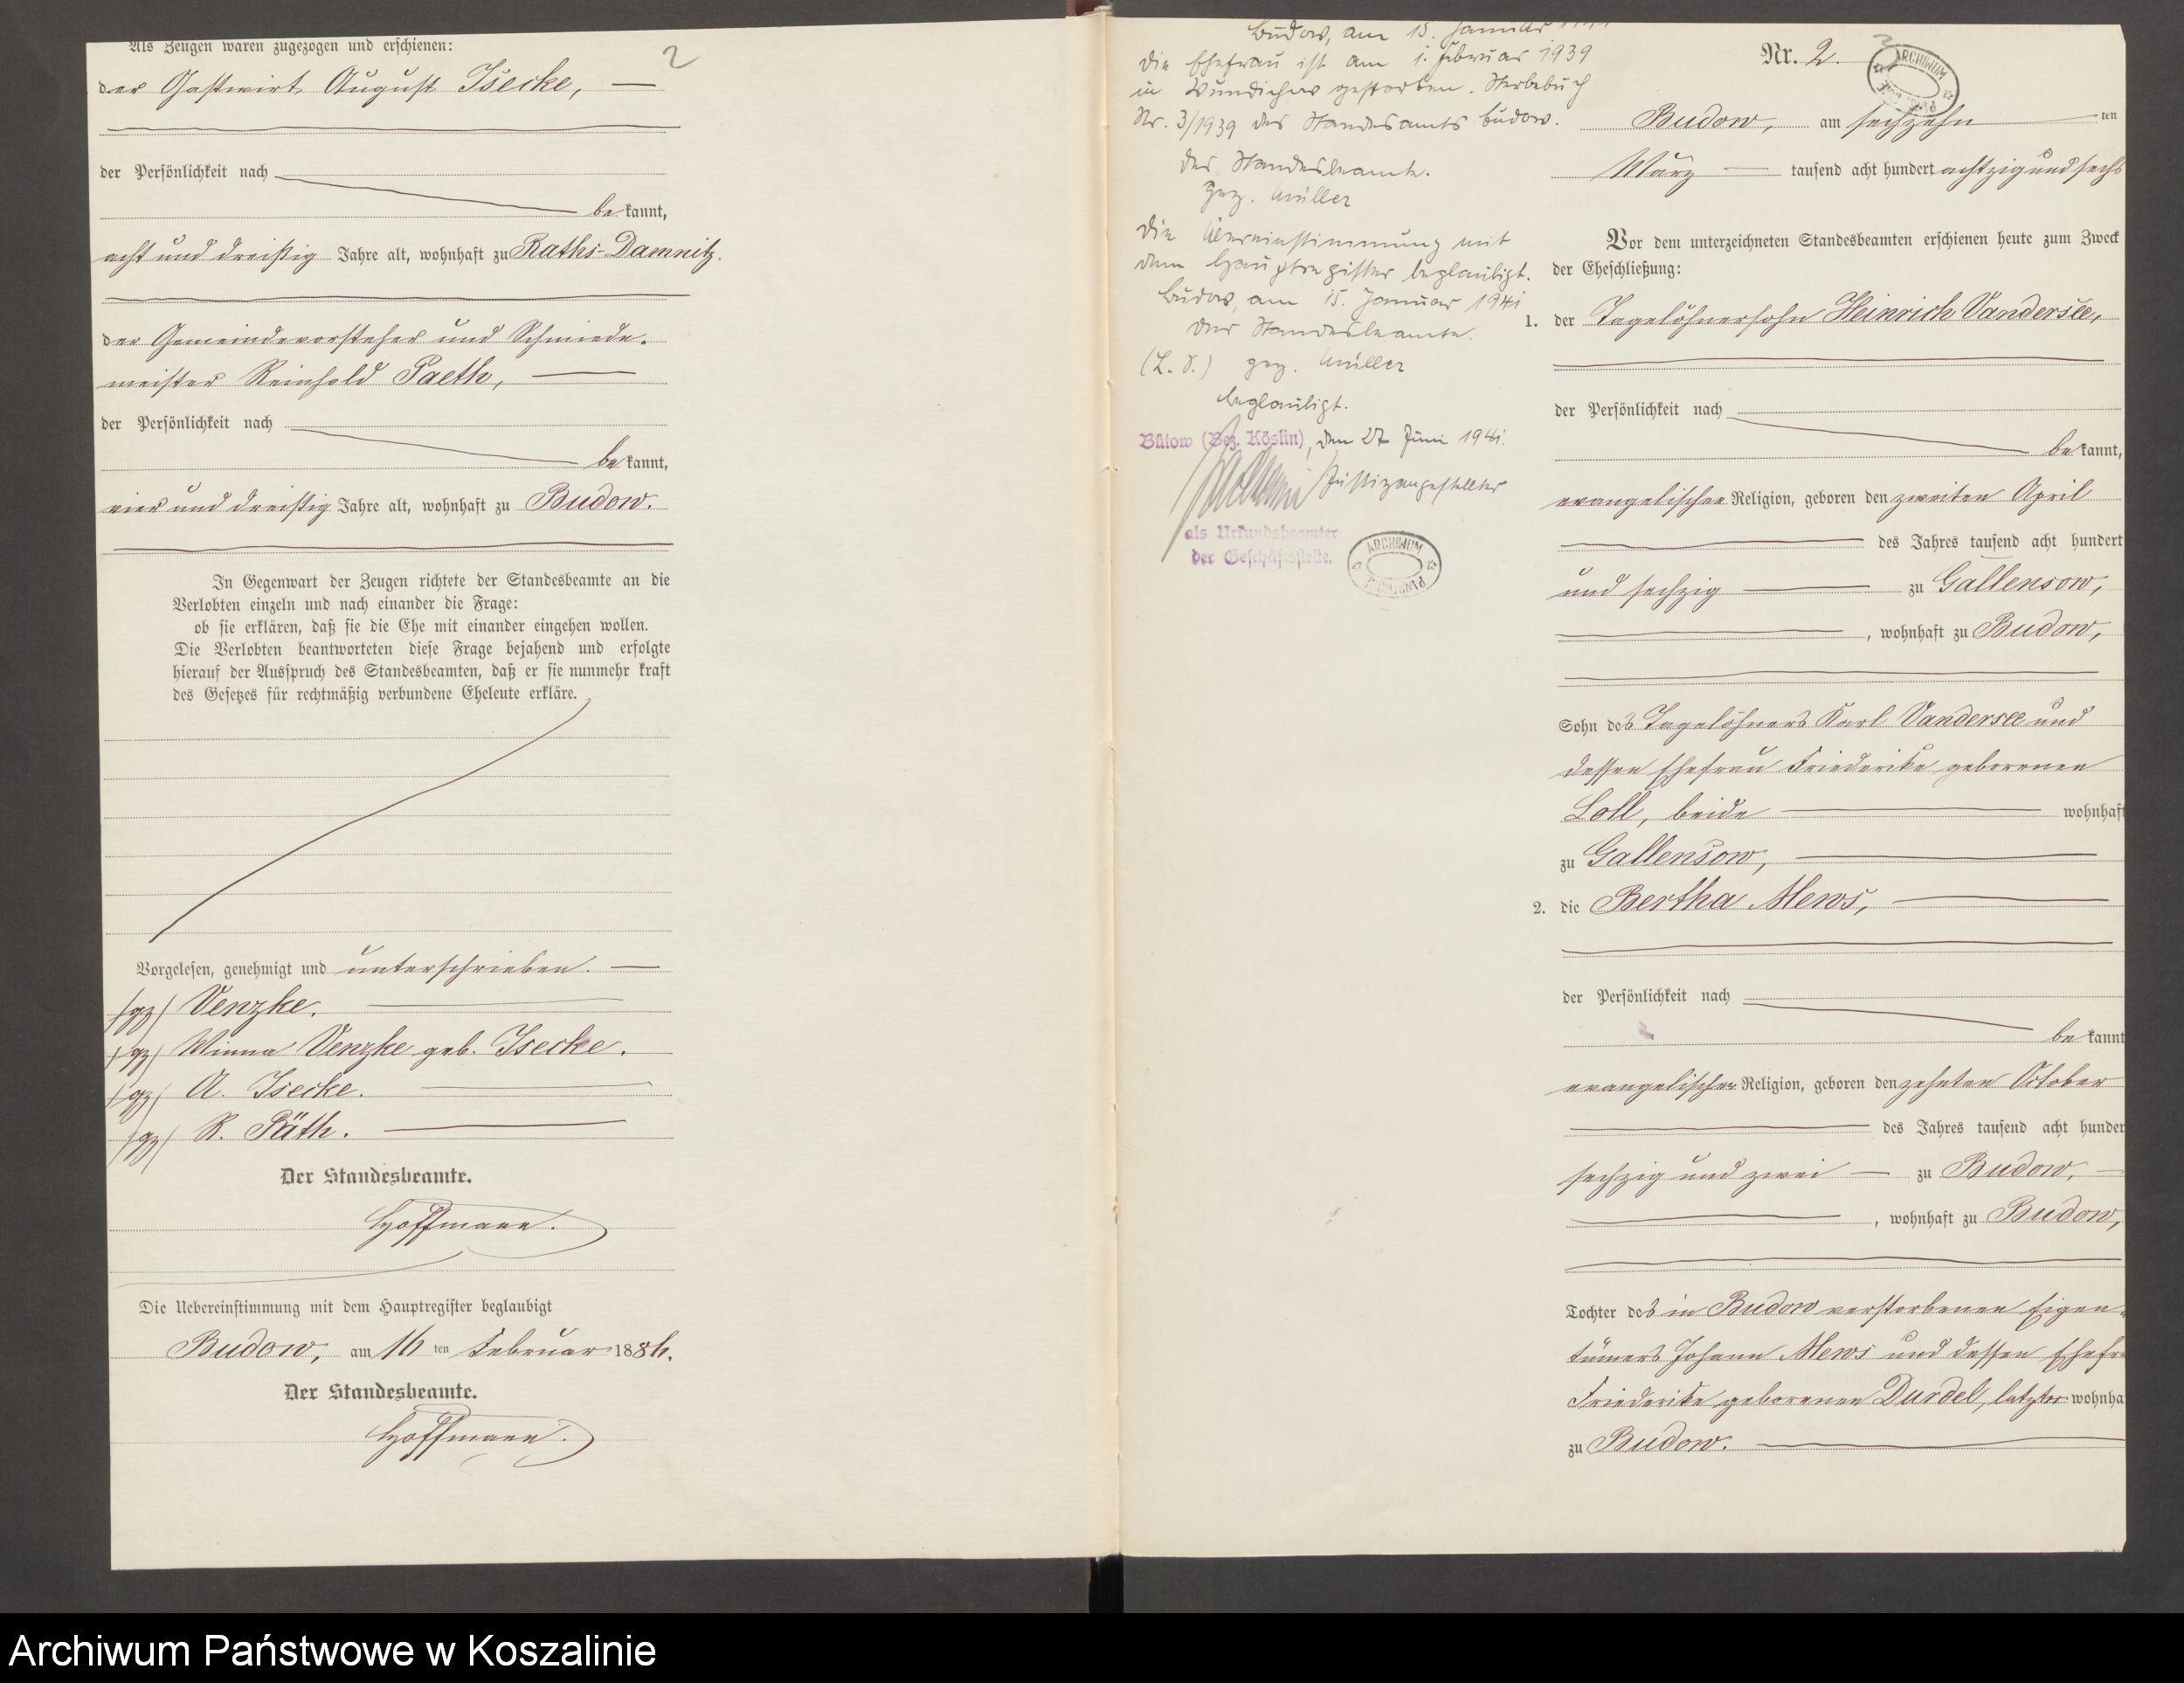 Als Zeugen waren zugezogen und erschienen:
2
der Gastwirt August Isecke,
der Persönlichkeit nach
be kannt,
acht und dreißig Jahre alt, wohnhaft zu Raths-Damnitz.
der Gemeindevorsteher und Schmiede-
meister Reinhold Paeth,
der Persönlichkeit nach
be kannt,
vier und dreißig Jahre alt, wohnhaft zu Budow.
In Gegenwart der Zeugen richtete der Standesbeamte an die
Verlobten einzeln und nach einander die Frage:
ob sie erklären, daß sie die Ehe mit einander eingehen wollen.
Die Verlobten beantworteten diese Frage bejahend und erfolgte
hierauf der Ausspruch des Standesbeamten, daß er sie nunmehr kraft
des Gesetzes für rechtmäßig verbundene Eheleute erkläre.
Vorgelesen, genehmigt und unterschrieben.
/gz/ Venzke.
/gz/ Minna Venzke geb. Isecke.
/gz/ A. Isecke.
/gz/ R. Päth.
Der Standesbeamte.
Hoffmann.
Die Uebereinstimmung mit dem Hauptregister beglaubigt
Budow, am 16 ten Februar 1886.
Der Standesbeamte.
Hoffmann.
Budow, am 15. Januar
Die Ehefrau ist am 1. Februar 1939
in Wundichow gestorben. Sterbebuch
Nr. 3/1939 des Standesamts Budow.
Der Standesbeamte.
gez. Müller
Die Übereinstimmung mit
dem Hauptregister beglaubigt.
Budow, am 15. Januar 1941
Der Standesbeamte.
(L. S.) gez. Müller
beglaubigt.
Bütow (Bez. Köslin), den 27 Juni 1941.
Justizangestellter
als Urkundsbeamter
der Geschäftsstelle.
ARCHIWUM
Nr. 2.
ARCHIWUM
Budow, am sechzehn ten
März tausend acht hundert achtzig und sechs
Vor dem unterzeichneten Standesbeamten erschienen heute zum Zweck
der Eheschließung:
1. der Tagelöhnersohn Heinrich Vandersee,
der Persönlichkeit nach
be kannt,
evangelischer Religion, geboren den zweiten April
des Jahres tausend acht hundert
und sechzig zu Gallensow,
, wohnhaft zu Budow,
Sohn des Tagelöhners Karl Vandersee und
dessen Ehefrau Friederike geborenen
Loll, beide wohnhaft
zu Gallensow,
2. die Bertha Mews,
der Persönlichkeit nach
be kannt
evangelischer Religion, geboren den zehnten October
des Jahres tausend acht hunder
sechzig und zwei zu Budow,
, wohnhaft zu Budow,
Tochter des in Budow verstorbenen Eigen-
tümers Johann Mews und dessen Ehefr
Friederike geborenen Durdel, letzter wohnha
zu Budow.
Archiwum Państwowe w Koszalinie